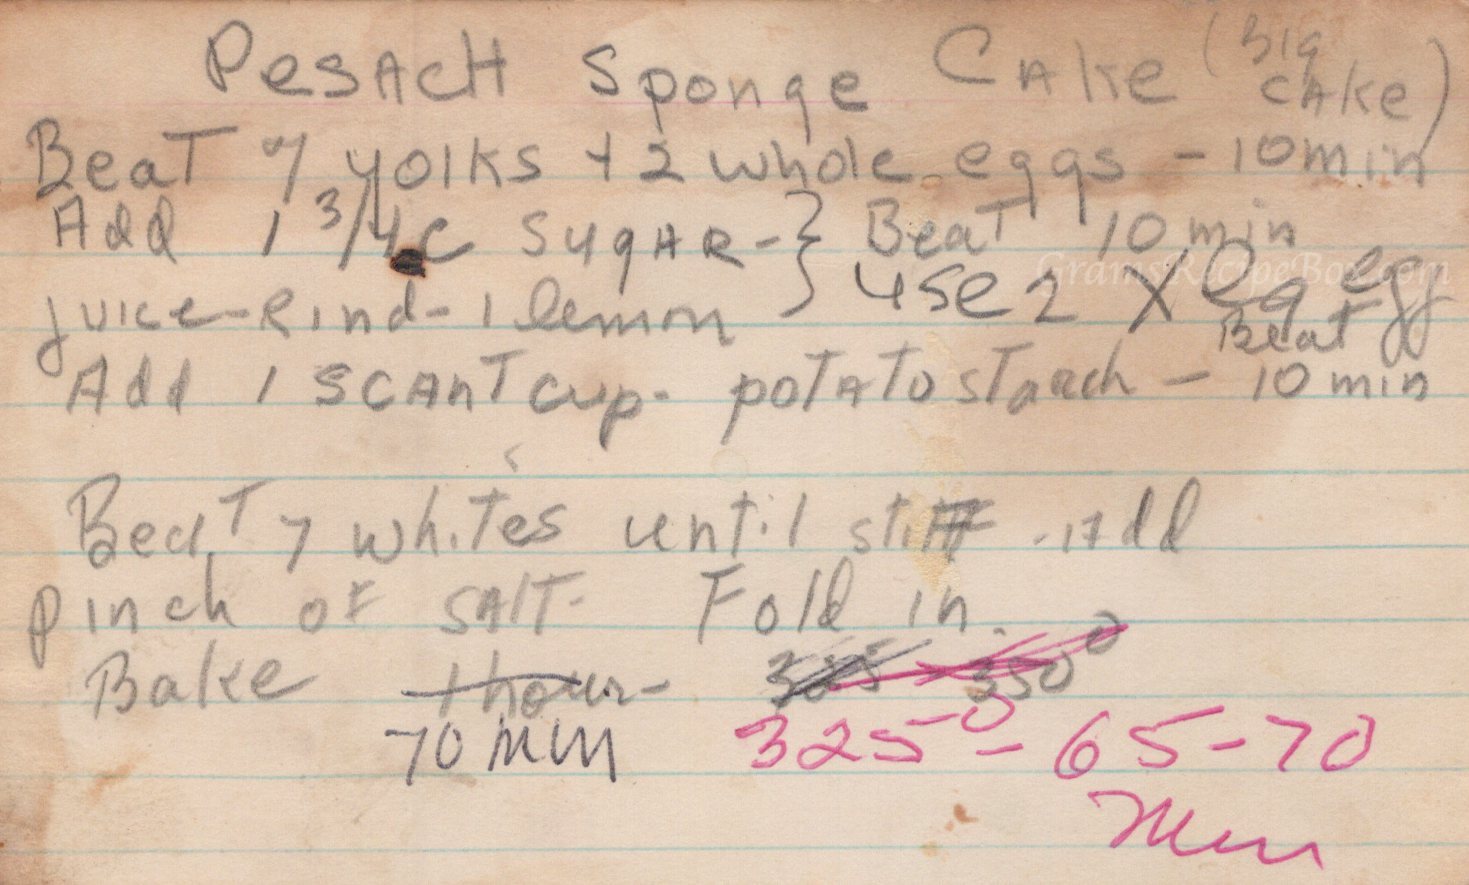 Pesach Sponge Cake (Big Cake)
Beat 7 yolks + 2 whole eggs - 10 min
Add 1 3/4 c sugar - } Beat 10 min
juice - Rind - 1 lemon } use 2 X Lg egg
GramsRecipeBox.com
Beat
Add 1 scant cup - potato starch - 10 min
Beat 7 whites until stiff - Add
pinch of salt - Fold in.
Bake 1 hour - 350°
70 min 325° - 65-70
Min